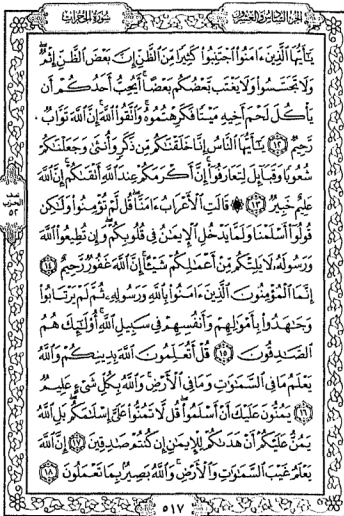 الجزء السادس والعشرون
سورة الحجرات
يَٰٓأَيُّهَا ٱلَّذِينَ ءَامَنُوا۟ ٱجْتَنِبُوا۟ كَثِيرًا مِّنَ ٱلظَّنِّ إِنَّ بَعْضَ ٱلظَّنِّ إِثْمٌ
وَلَا تَجَسَّسُوا۟ وَلَا يَغْتَب بَّعْضُكُم بَعْضًا أَيُحِبُّ أَحَدُكُمْ أَن
يَأْكُلَ لَحْمَ أَخِيهِ مَيْتًا فَكَرِهْتُمُوهُ وَٱتَّقُوا۟ ٱللَّهَ إِنَّ ٱللَّهَ تَوَّابٌ
رَّحِيمٌ ١٢ يَٰٓأَيُّهَا ٱلنَّاسُ إِنَّا خَلَقْنَٰكُم مِّن ذَكَرٍ وَأُنثَىٰ وَجَعَلْنَٰكُمْ
شُعُوبًا وَقَبَآئِلَ لِتَعَارَفُوٓا۟ إِنَّ أَكْرَمَكُمْ عِندَ ٱللَّهِ أَتْقَىٰكُمْ إِنَّ ٱللَّهَ
عَلِيمٌ خَبِيرٌ ١٣ ۞ قَالَتِ ٱلْأَعْرَابُ ءَامَنَّا قُل لَّمْ تُؤْمِنُوا۟ وَلَٰكِن
قُولُوٓا۟ أَسْلَمْنَا وَلَمَّا يَدْخُلِ ٱلْإِيمَٰنُ فِى قُلُوبِكُمْ وَإِن تُطِيعُوا۟ ٱللَّهَ
وَرَسُولَهُۥ لَا يَلِتْكُم مِّنْ أَعْمَٰلِكُمْ شَيْـًٔا إِنَّ ٱللَّهَ غَفُورٌ رَّحِيمٌ ١٤
إِنَّمَا ٱلْمُؤْمِنُونَ ٱلَّذِينَ ءَامَنُوا۟ بِٱللَّهِ وَرَسُولِهِۦ ثُمَّ لَمْ يَرْتَابُوا۟
وَجَٰهَدُوا۟ بِأَمْوَٰلِهِمْ وَأَنفُسِهِمْ فِى سَبِيلِ ٱللَّهِ أُو۟لَٰٓئِكَ هُمُ
ٱلصَّٰدِقُونَ ١٥ قُلْ أَتُعَلِّمُونَ ٱللَّهَ بِدِينِكُمْ وَٱللَّهُ
يَعْلَمُ مَا فِى ٱلسَّمَٰوَٰتِ وَمَا فِى ٱلْأَرْضِ وَٱللَّهُ بِكُلِّ شَىْءٍ عَلِيمٌ
١٦ يَمُنُّونَ عَلَيْكَ أَنْ أَسْلَمُوا۟ قُل لَّا تَمُنُّوا۟ عَلَىَّ إِسْلَٰمَكُم بَلِ ٱللَّهُ
يَمُنُّ عَلَيْكُمْ أَنْ هَدَىٰكُمْ لِلْإِيمَٰنِ إِن كُنتُمْ صَٰدِقِينَ ١٧ إِنَّ ٱللَّهَ
يَعْلَمُ غَيْبَ ٱلسَّمَٰوَٰتِ وَٱلْأَرْضِ وَٱللَّهُ بَصِيرٌۢ بِمَا تَعْمَلُونَ ١٨
نصف
الحزب
٥٢
٥١٧